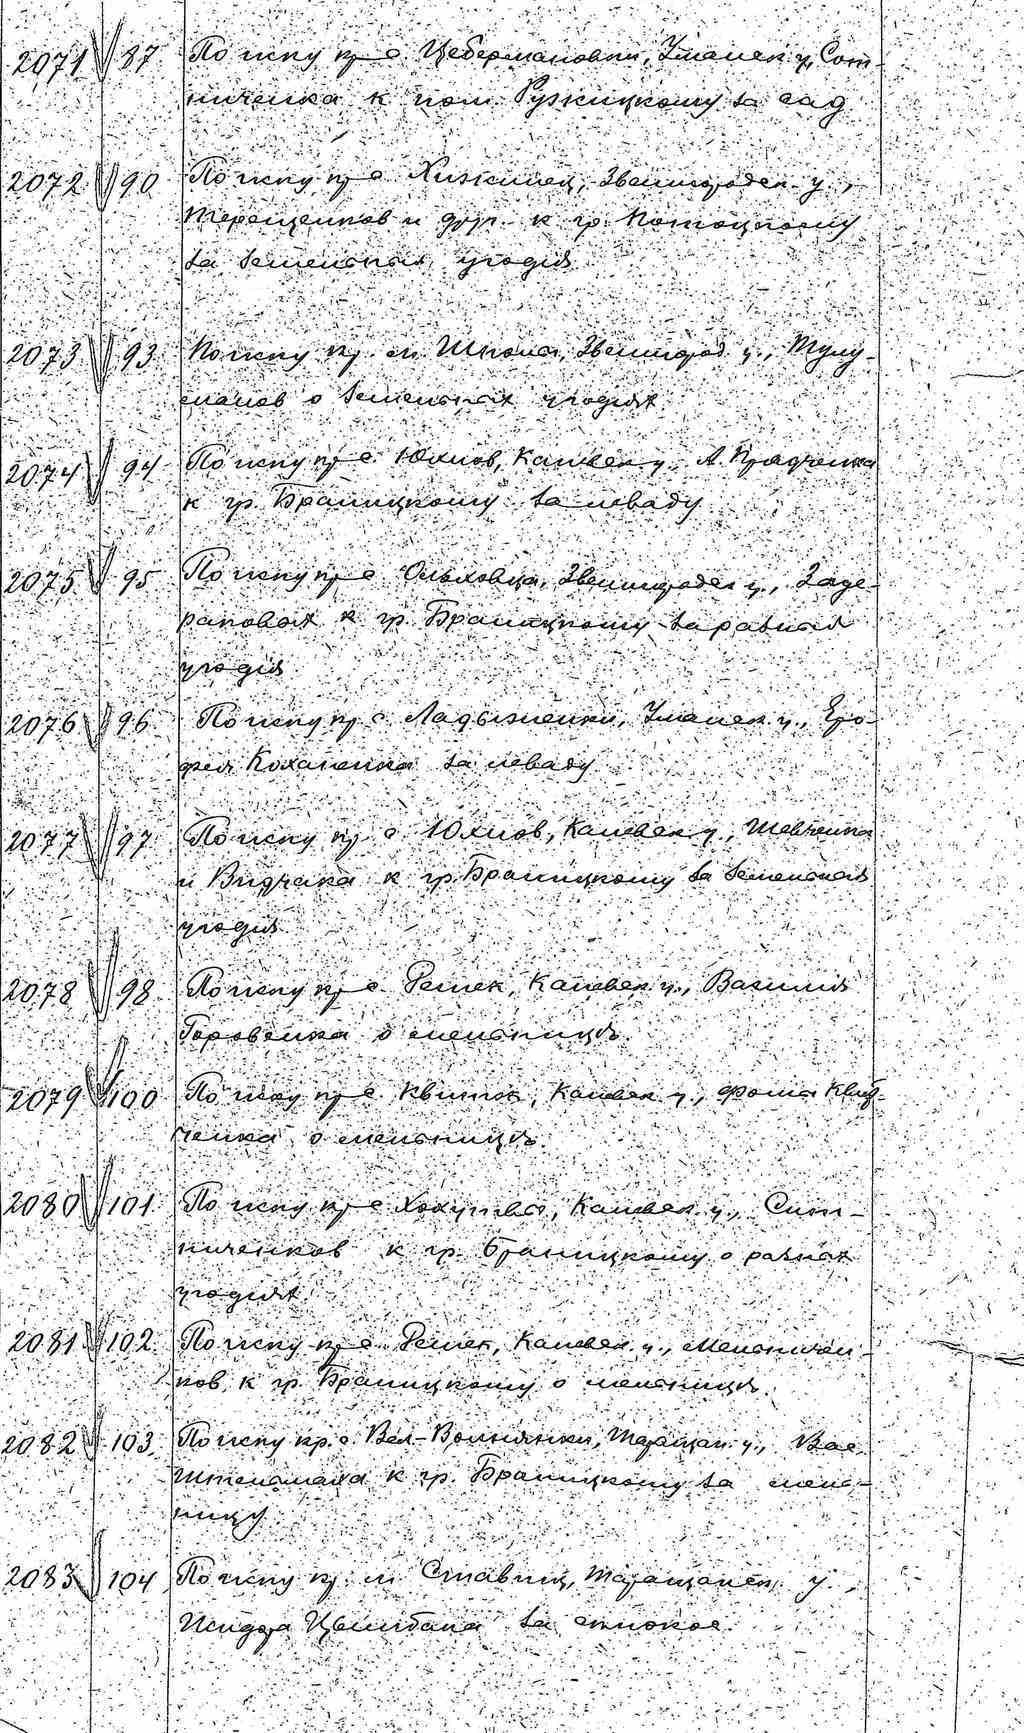 2071 87 По иску кр. с. Цебермановки, Уманск. у., Сот-
ниченка к пом. Ружицкому за сад
2072 90 По иску кр. с. Хижинец, Звенигородск. у.,
Терещенков и друг. к гр. Потоцкому
за земельныя угодия
2073 93 По иску кр. м. Шпола, Звенигород. у., Тулу-
манов о земельных угодиях
2074 94 По иску кр. с. Юхнов, Каневск. у., А.
к гр. Браницкому за леваду
2075 95 По иску кр. с. Ольховца, Звенигородск. у., Заде-
раковых к гр. Браницкому за разныя
угодия
2076 96 По иску кр. с. Ладыженки, Уманск. у., Еро-
фея Коханенка за леваду
2077 97 По иску кр. с. Юхнов, Каневск. у., Шевченка
и к гр. Браницкому за земельныя
угодия
2078 98 По иску кр. с. Решек, Каневск. у., Василия
Горовенка о мельнице.
2079 100 По иску кр. с. Квитки, Каневск. у., Фомы Квит-
ченка о мельнице.
2080 101 По иску кр. с. Хохитва, Каневск. у., Сит-
ниченков к гр. Браницкому о разных
угодиях
2081 102 По иску кр. с. Решек, Каневск. у., Мельничен-
ков к гр. Браницкому о мельнице.
2082 103 По иску кр. с. Вел-Вольнянки, Таращан. у., Вас.
Штельмаха к гр. Браницкому за мель-
ницу
2083 104 По иску кр. м. Ставищ, Таращанск. у.
Исидора Цымбала за